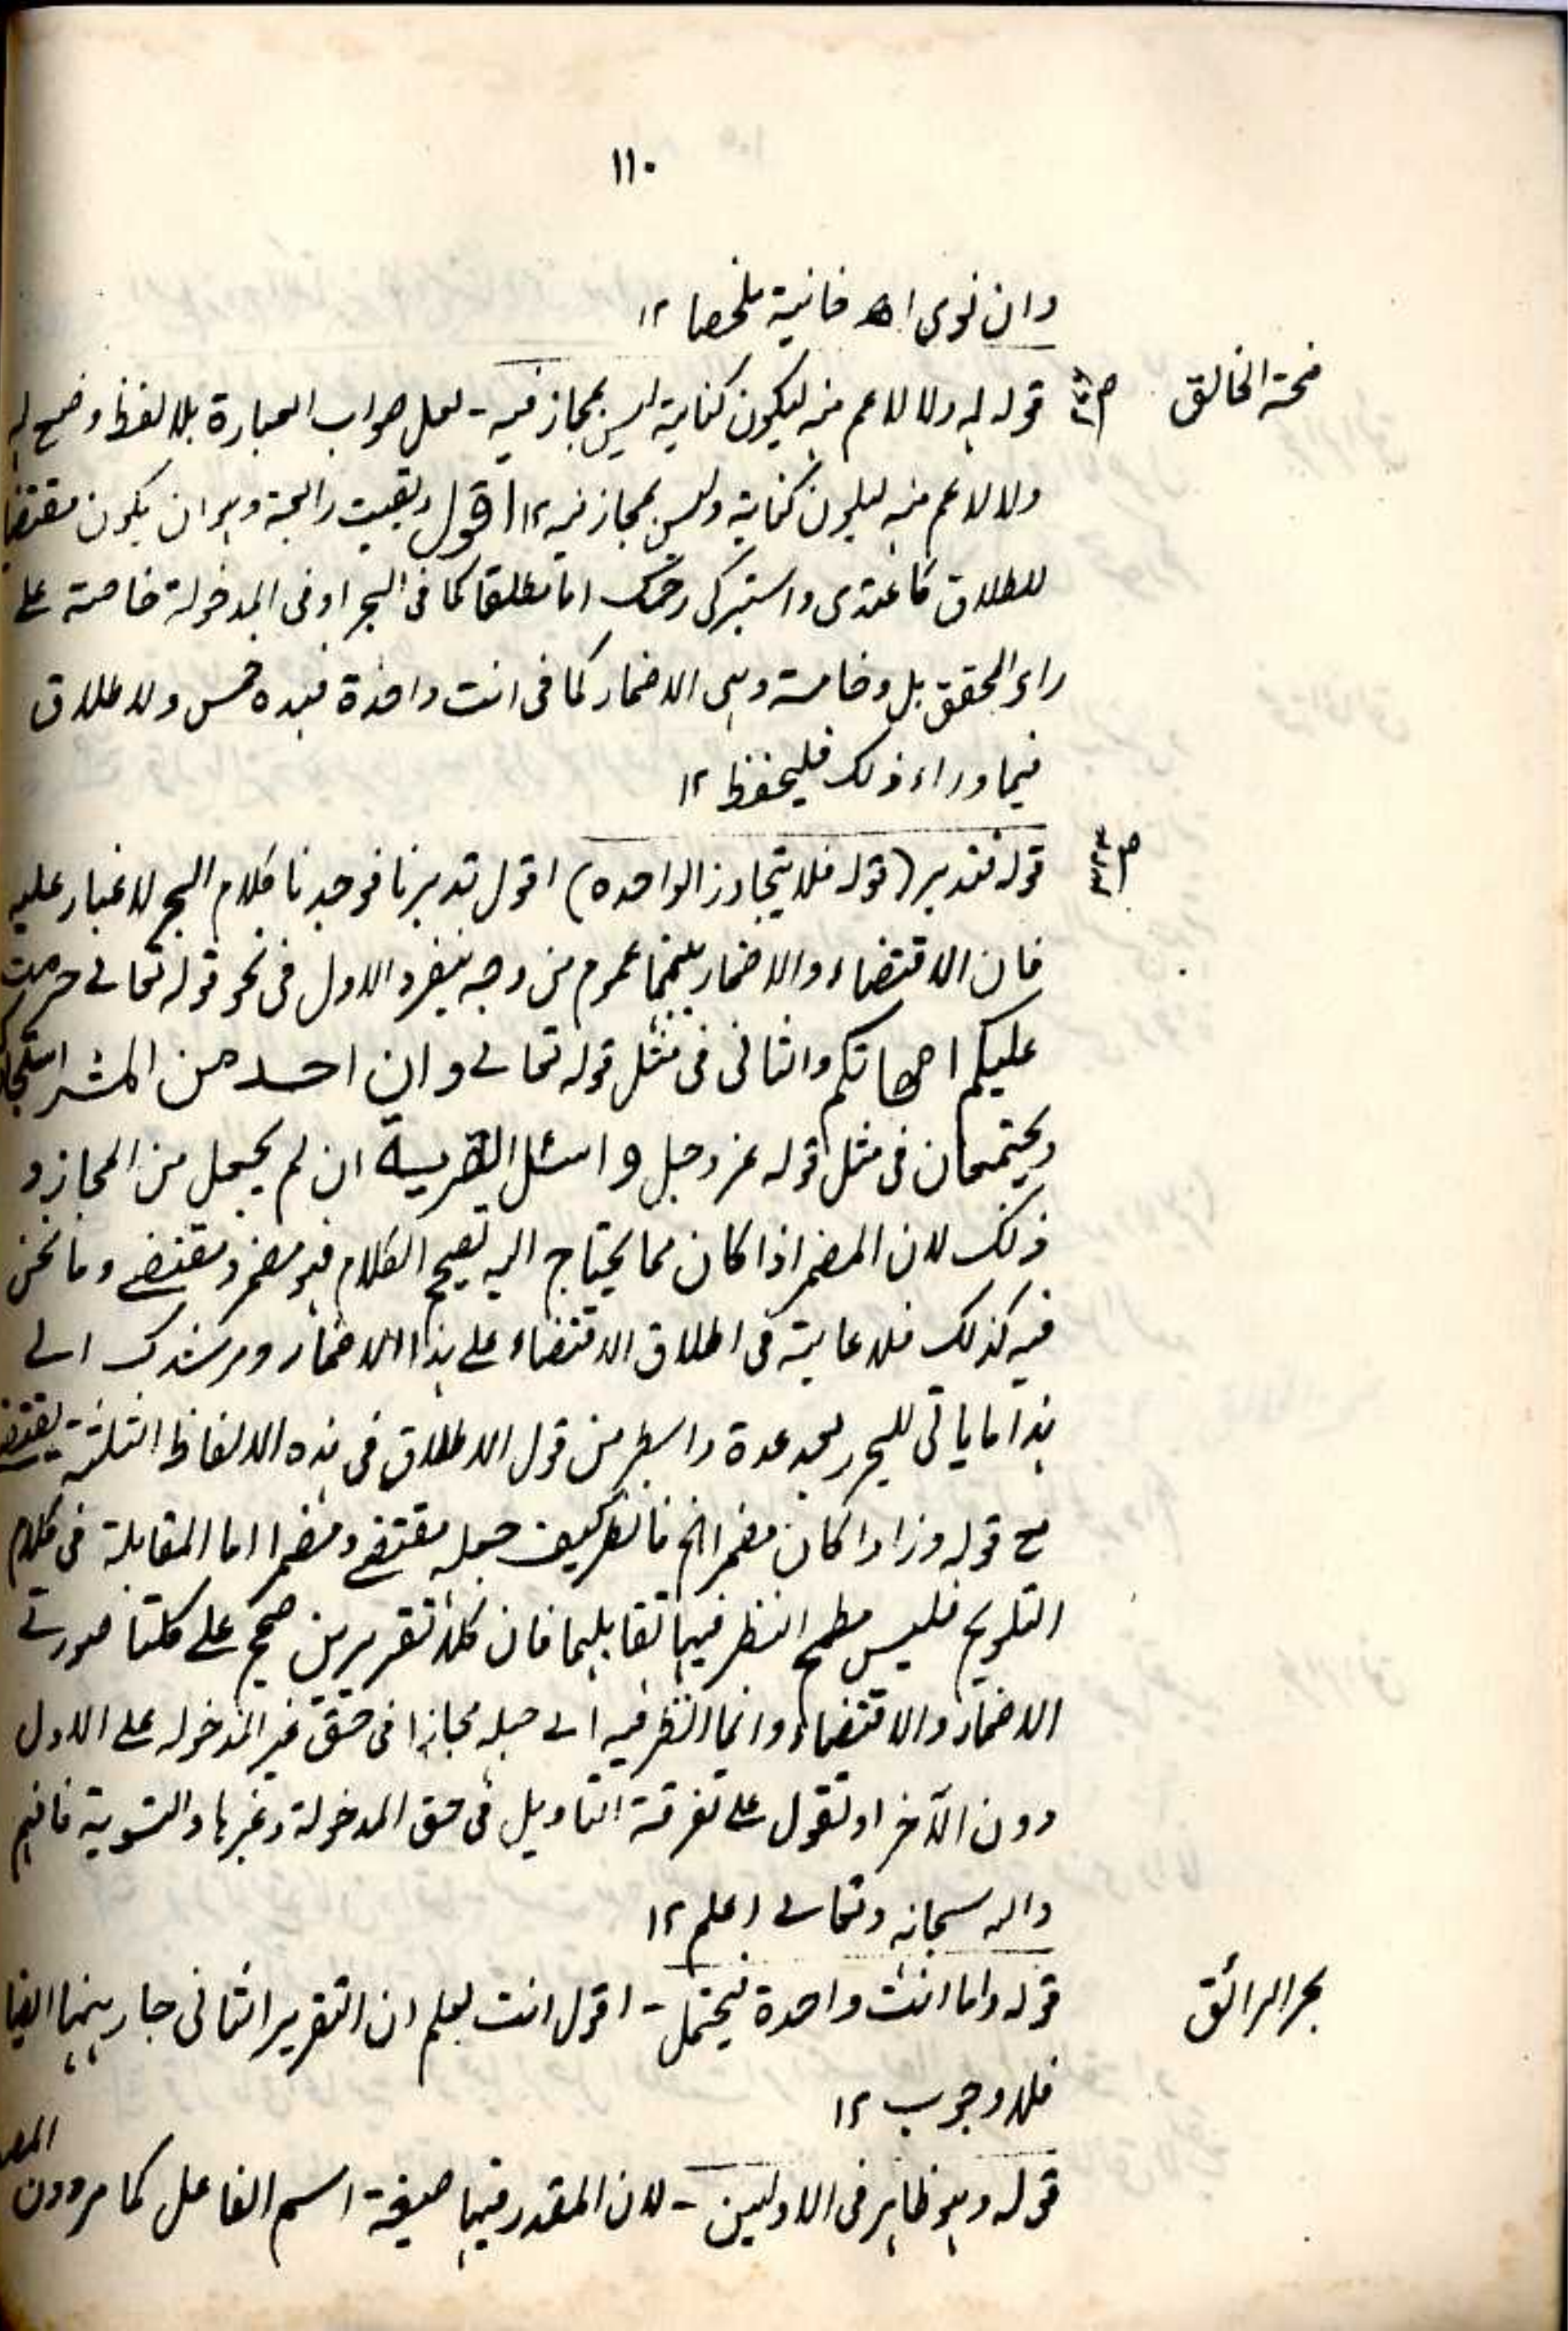 ١١٠
وان نوى اھ خانية ملخصا ١٢
منحة الخالق
قوله له ولا لاعم منه ليكون كناية ليس بمجاز فيه - لعل صواب العبارة بلا لفظ وضع له
ولا لاعم منه ليكون كناية وليس بمجاز فيه ١٢ اقول وبقيت رابعة وهو ان يكون مقتضيا
للطلاق كاعتدى واستبرئى رحمك اما مطلقا كما فى البحر او فى المدخولة خاصة على
راى المحقق بل وخامسة وهى الاضمار كما فى انت واحدة فهذه خمس ولا طلاق
فيما وراء ذلك فليحفظ ١٢
قوله فتدبر (قوله فلا يتجاوز الواحدة) اقول تدبرنا فوجدنا كلام البحر لا غبار عليه
فان الاقتضاء والاضمار بينهما عموم من وجه ينفرد الاول فى نحو قوله تعالى حرمت
عليكم امهاتكم والثانى فى مثل قوله تعالى وان احد من المشر استجار
ويجتمعان فى مثل قوله عز وجل واسئل القرية ان لم يجعل من المجاز و
ذلك لان المضمر اذا كان مما يحتاج اليه تصحيح الكلام فهو مضمر ومقتضى وما نحن
فيه كذلك فلا عائبة فى اطلاق الاقتضاء على هذا الاضمار ومرشدك الى
هذا ما ياتى للبحر بعد عدة اسطر من قول الاطلاق فى هذه الالفاظ الثلثة يقتضى
مع قوله وزاد اكان مضمرا الخ فانظر كيف جعله مقتضى ومضمرا اما المقابلة فى كلام
التلويح فليس مطمح النظر فيها تقابلهما فان كلا تقريرين صحيح على كلتا صورتى
الاضمار والاقتضاء وانما النظر فيه الى جعله مجازا فى حق غير المدخولة على الاول
دون الآخر او نقول على تفرقة التاويل فى حق المدخولة وغيرها والتسوية فافهم
والله سبحانه وتعالى اعلم ١٢
بحر الرائق
قوله واما انت واحدة فيحتمل - اقول انت تعلم ان التقرير الثانى جار بينهما ايضا
فلا وجوب ١٢
قوله وهو ظاهر فى الاوليين - لان المقدر فيها صيغة اسم الفاعل كما مر دون